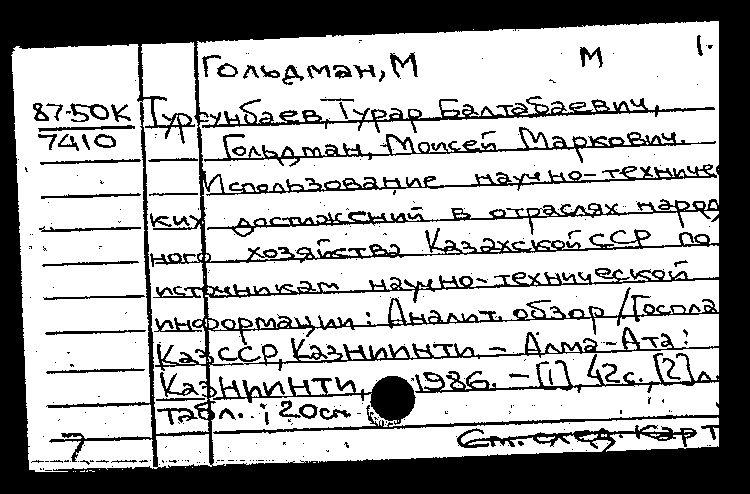 Гольдман, М М 1.
87-50К Турсунбаев, Турар Балтабаевич,
7410 Гольдман, Моисей Маркович.
Использование научно-техничес
ких достижений в отраслях народ
ного хозяйства Казахской ССР по
источникам научно-технической
информации: Аналит. обзор / Госпла
КазССР, КазНИИНТИ. - Алма-Ата:
КазНИИНТИ, 1986. - [1], 42 с., [2] л.
табл. ; 20 см
7 См. след. карт